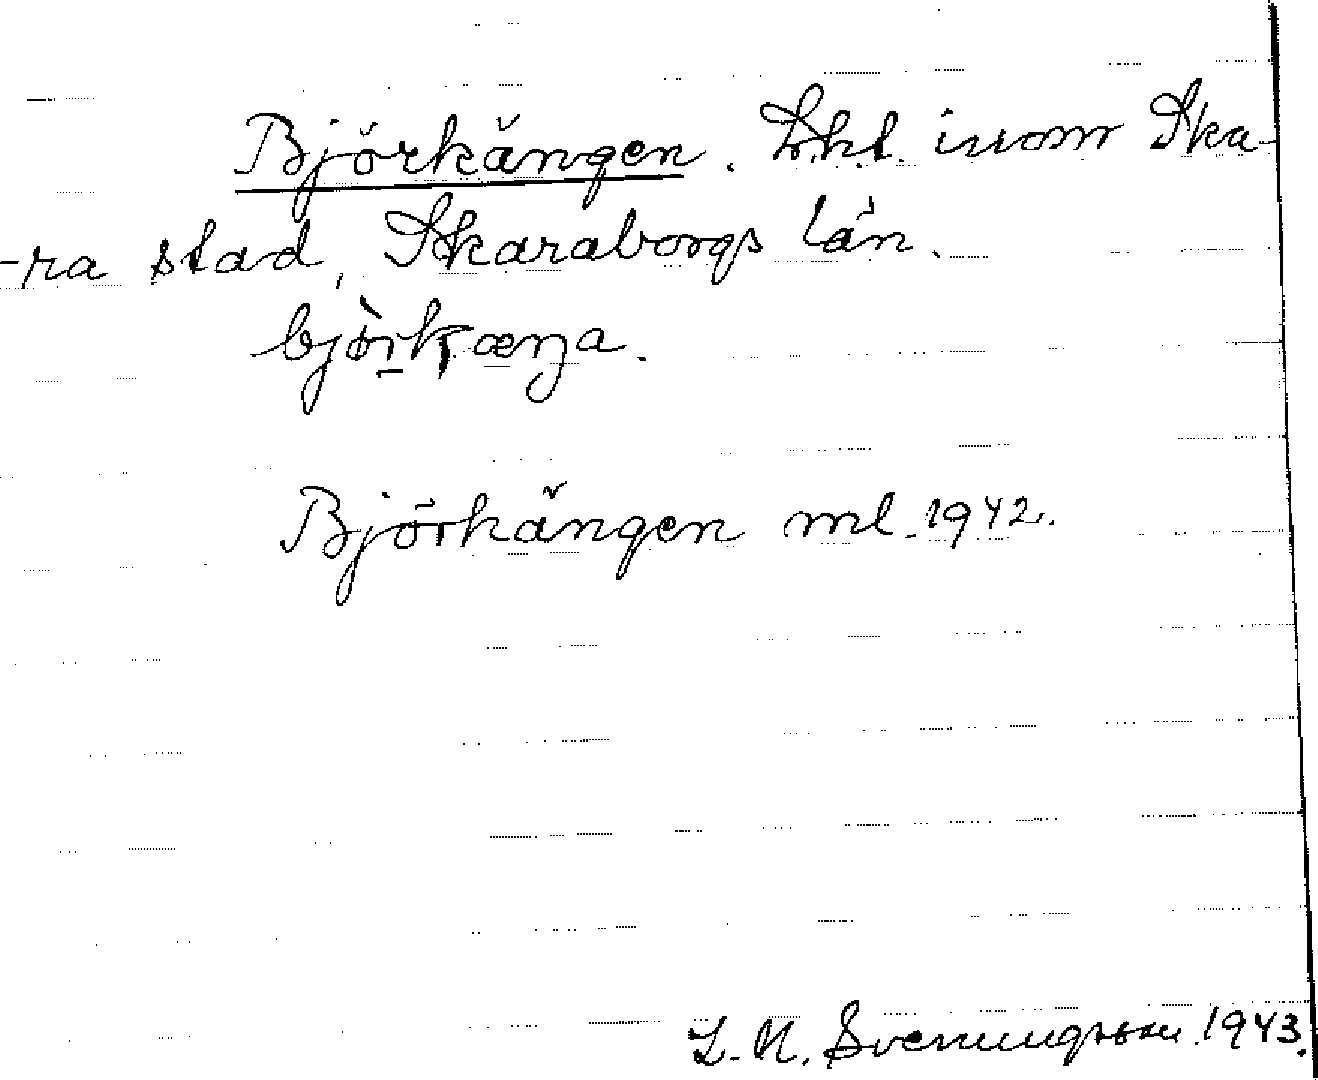 Björkängen. Lht. inom Ska-
-ra stad, Skaraborgs län.
björkæŋa.
Björkängen ml. 1942.
L. M. Svenungsson 1943.